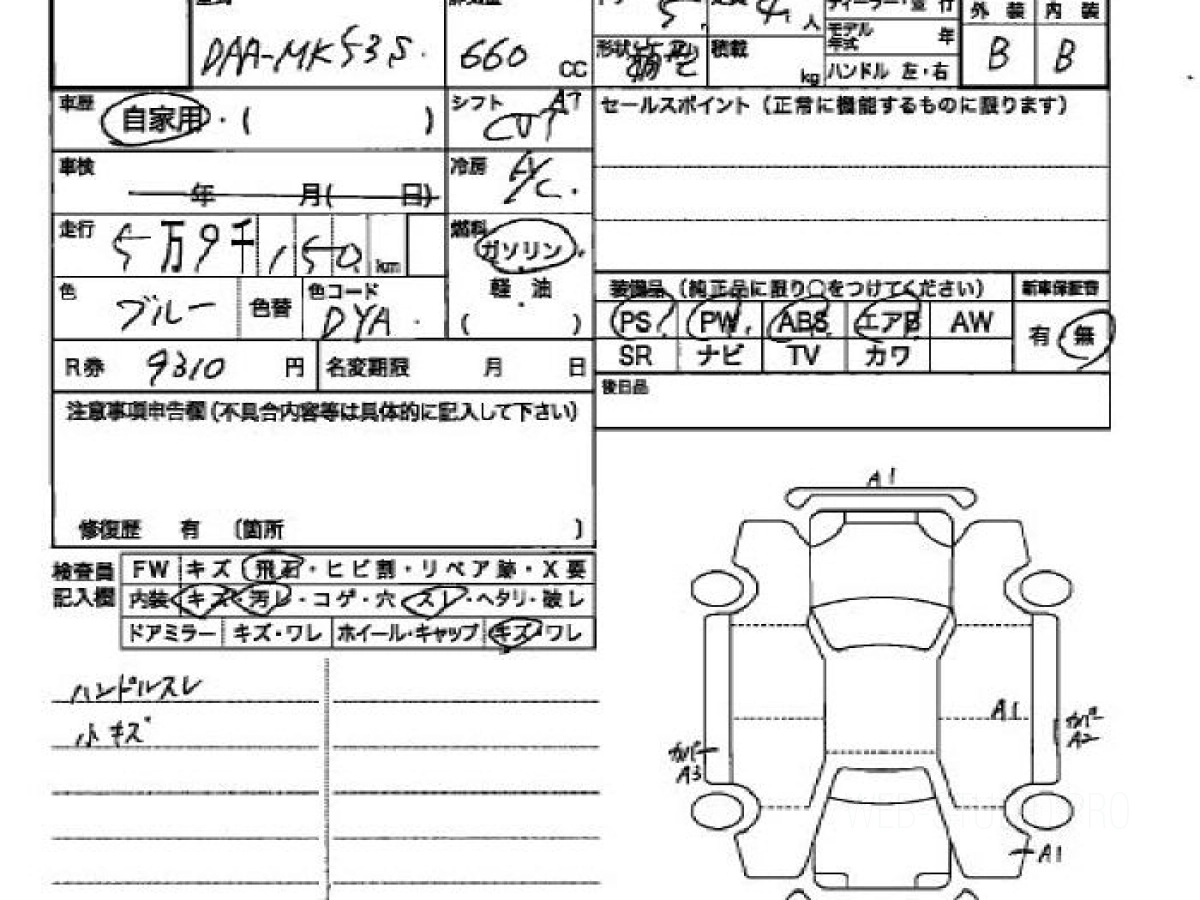 DAA-MK53S.
660 CC
5. 4 人
形状 箱型 積載 kg
モデル年式 年
ハンドル 左・右
外装 内装
B B
車歴 自家用・( )
シフト AT CVT
セールスポイント(正常に機能するものに限ります)
車検 年 月( 日)
冷房 A/C.
走行 5万9千150 km
燃料 ガソリン・軽油・( )
色 ブルー 色替 色コード DYA.
装備品(純正品に限り〇をつけてください) 新車保証書
PS PW ABS エアB AW
SR ナビ TV カワ
有・無
R券 9310 円 名変期限 月 日
後日品
注意事項申告欄(不具合内容等は具体的に記入して下さい)
修復歴 有 〔箇所 〕
検査員記入欄
FW キズ・飛石・ヒビ割・リペア跡・X要
内装 キズ・汚レ・コゲ・穴・スレ・ヘタリ・破レ
ドアミラー キズ・ワレ ホイール・キャップ キズ・ワレ
ハンドルスレ
小キズ
A1
A1
カバー A2
カバー A3
A1